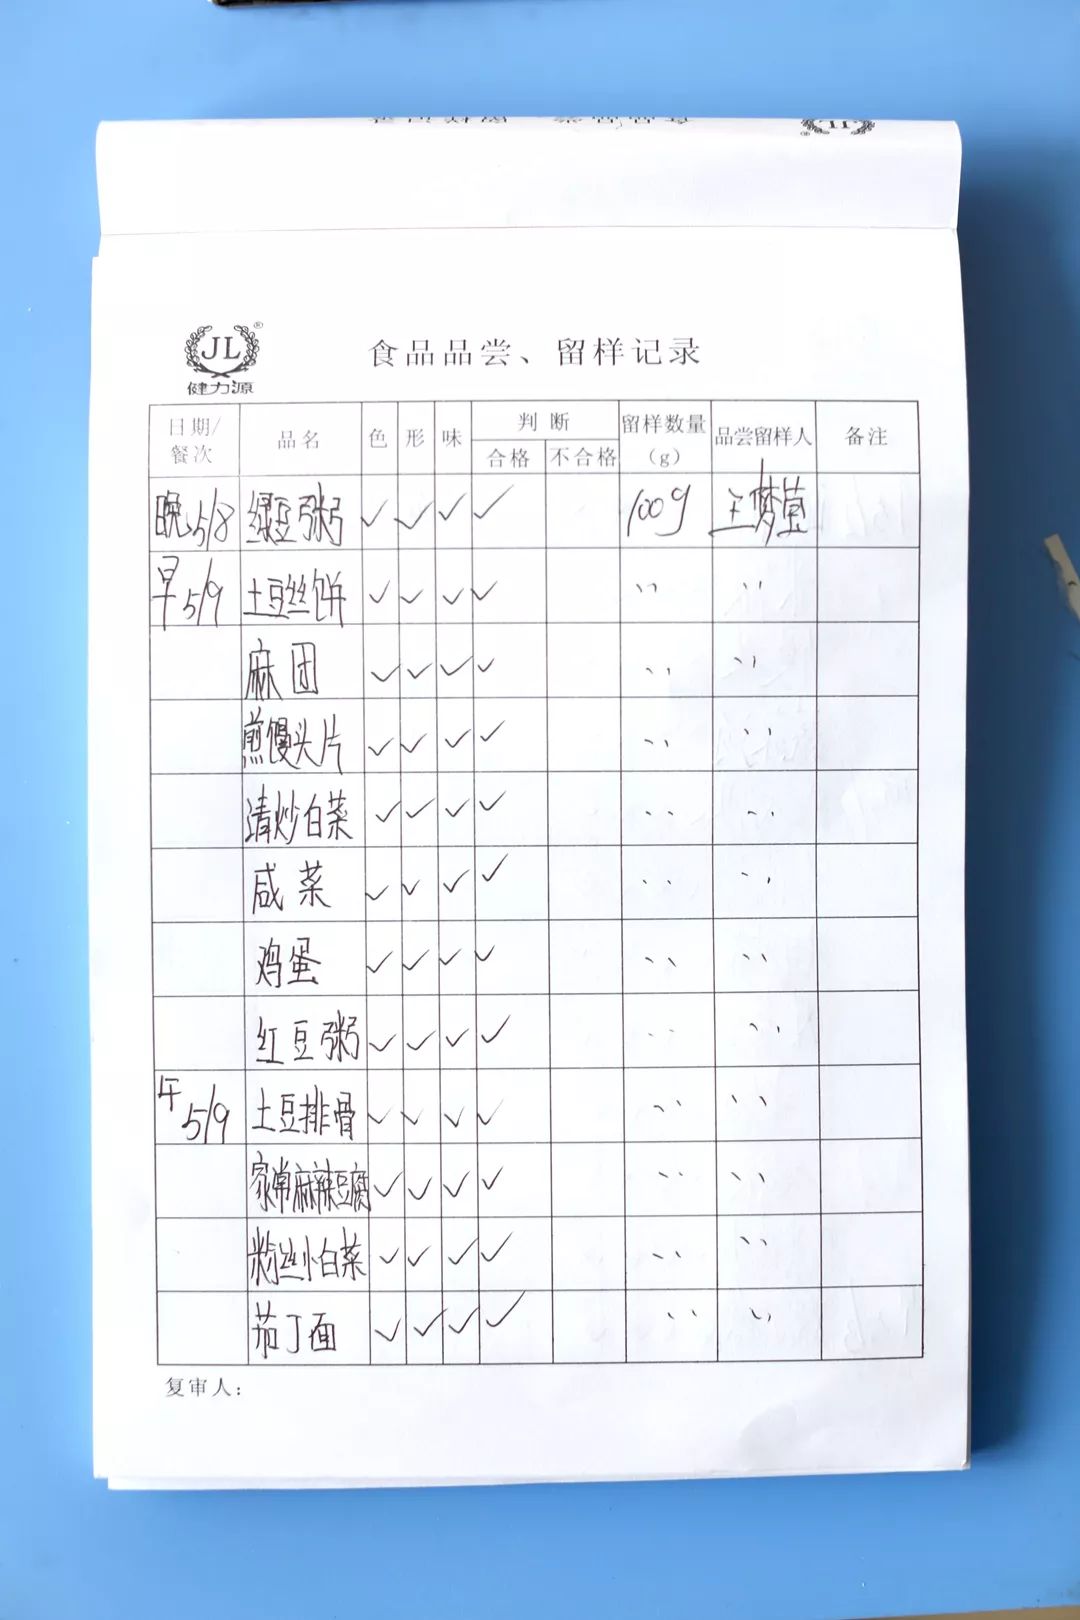 JL
®
健力源
食品品尝、留样记录
日期/餐次 品名 色 形 味 判断 合格 不合格 留样数量(g) 品尝留样人 备注
晚5/8 绿豆粥 ✓ ✓ ✓ ✓ 100g 王梦莹
早5/9 土豆丝饼 ✓ ✓ ✓ ✓ 、、 、、
麻团 ✓ ✓ ✓ ✓ 、、 、、
煎馒头片 ✓ ✓ ✓ ✓ 、、 、、
清炒白菜 ✓ ✓ ✓ ✓ 、、 、、
咸菜 ✓ ✓ ✓ ✓ 、、 、、
鸡蛋 ✓ ✓ ✓ ✓ 、、 、、
红豆粥 ✓ ✓ ✓ ✓ 、、 、、
午5/9 土豆排骨 ✓ ✓ ✓ ✓ 、、 、、
家常麻辣豆腐 ✓ ✓ ✓ ✓ 、、 、、
粉丝小白菜 ✓ ✓ ✓ ✓ 、、 、、
茄丁面 ✓ ✓ ✓ ✓ 、、 、、
复审人: